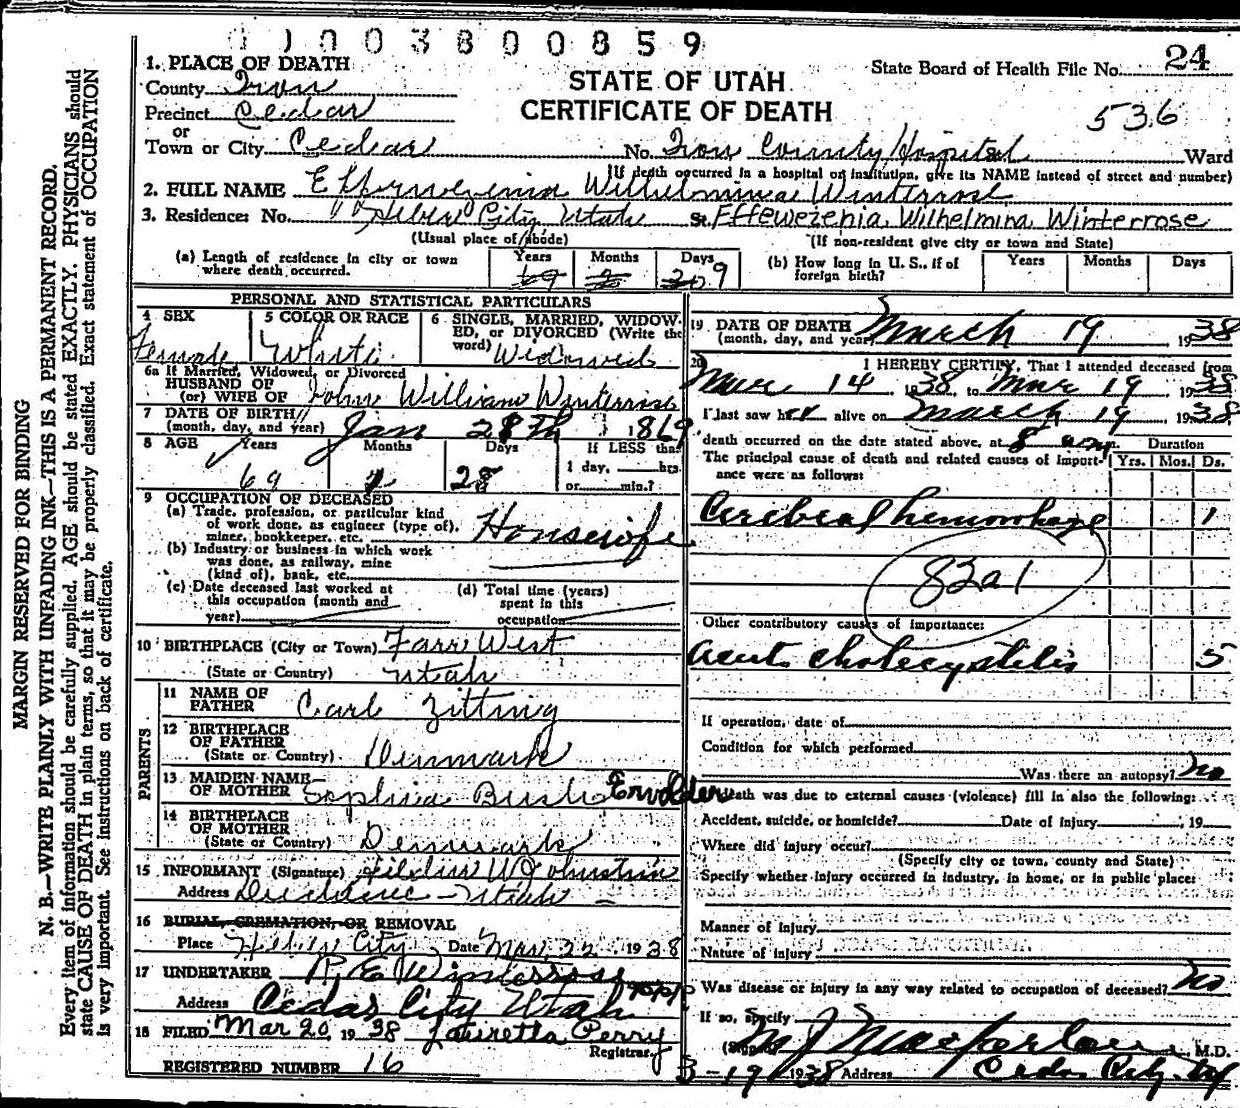 0 1 0 0 3 8 0 0 8 5 9
24
1. PLACE OF DEATH
STATE OF UTAH
State Board of Health File No.
County Iron
CERTIFICATE OF DEATH
Precinct Cedar
536
or
Town or City Cedar No. Iron County Hospital Ward
(If death occurred in a hospital or institution, give its NAME instead of street and number)
2. FULL NAME Effewezenia Wilhelmina Winterrose
3. Residence: No. Heber City Utah St. Effewezenia Wilhelmina Winterrose
(Usual place of abode) (If non-resident give city or town and State)
(a) Length of residence in city or town where death occurred. Years 69 Months 2 Days 20 9
(b) How long in U. S., if of foreign birth? Years Months Days
PERSONAL AND STATISTICAL PARTICULARS
4 SEX Female
5 COLOR OR RACE White
6 SINGLE, MARRIED, WIDOWED, or DIVORCED (Write the word) Widowed
6a If Married, Widowed, or Divorced
HUSBAND OF
(or) WIFE OF John William Winterrose
7 DATE OF BIRTH
(month, day, and year) Jan 28th 1869
8 AGE Years 69 Months 1 Days 28 If LESS than
1 day, hrs.
or min.?
9 OCCUPATION OF DECEASED
(a) Trade, profession, or particular kind
of work done, as engineer (type of),
miner, bookkeeper, etc. Housewife
(b) Industry or business in which work
was done, as railway, mine
(kind of), bank, etc.
(c) Date deceased last worked at
this occupation (month and
year)
(d) Total time (years)
spent in this
occupation
10 BIRTHPLACE (City or Town) Farr West
(State or Country) Utah
PARENTS
11 NAME OF
FATHER Carl Zitting
12 BIRTHPLACE
OF FATHER
(State or Country) Denmark
13 MAIDEN NAME
OF MOTHER Sophia Ervolder
14 BIRTHPLACE
OF MOTHER
(State or Country) Denmark
15 INFORMANT (Signature) W Johnston
Address Utah
16 BURIAL, CREMATION, OR REMOVAL
Place Heber City Date Mar. 22 1938
17 UNDERTAKER R. E. Winterrose
Address Cedar City Utah
18 FILED Mar 20, 1938 Lauretta Perry
Registrar.
REGISTERED NUMBER 16
19 DATE OF DEATH
(month, day, and year) March 19, 1938
20 I HEREBY CERTIFY, That I attended deceased from
Mar 14 1938, to Mar 19, 1938
I last saw her alive on March 19, 1938
death occurred on the date stated above, at 8 a.m. Duration
The principal cause of death and related causes of importance were as follows: Yrs. Mos. Ds.
Cerebral hemorrhage 1
82a1
Other contributory causes of importance:
Acute cholecystitis 5
If operation, date of
Condition for which performed
Was there an autopsy? No
If death was due to external causes (violence) fill in also the following:
Accident, suicide, or homicide? Date of injury , 19
Where did injury occur?
(Specify city or town, county and State)
Specify whether injury occurred in industry, in home, or in public place:
Manner of injury
Nature of injury
Was disease or injury in any way related to occupation of deceased? No
If so, specify
(Signed) M J Macfarlane, M.D.
3-19 1938 Address Cedar City, Ut
MARGIN RESERVED FOR BINDING
N. B.—WRITE PLAINLY WITH UNFADING INK—THIS IS A PERMANENT RECORD.
Every item of information should be carefully supplied. AGE should be stated EXACTLY. PHYSICIANS should
state CAUSE OF DEATH in plain terms, so that it may be properly classified. Exact statement of OCCUPATION
is very important. See instructions on back of certificate.